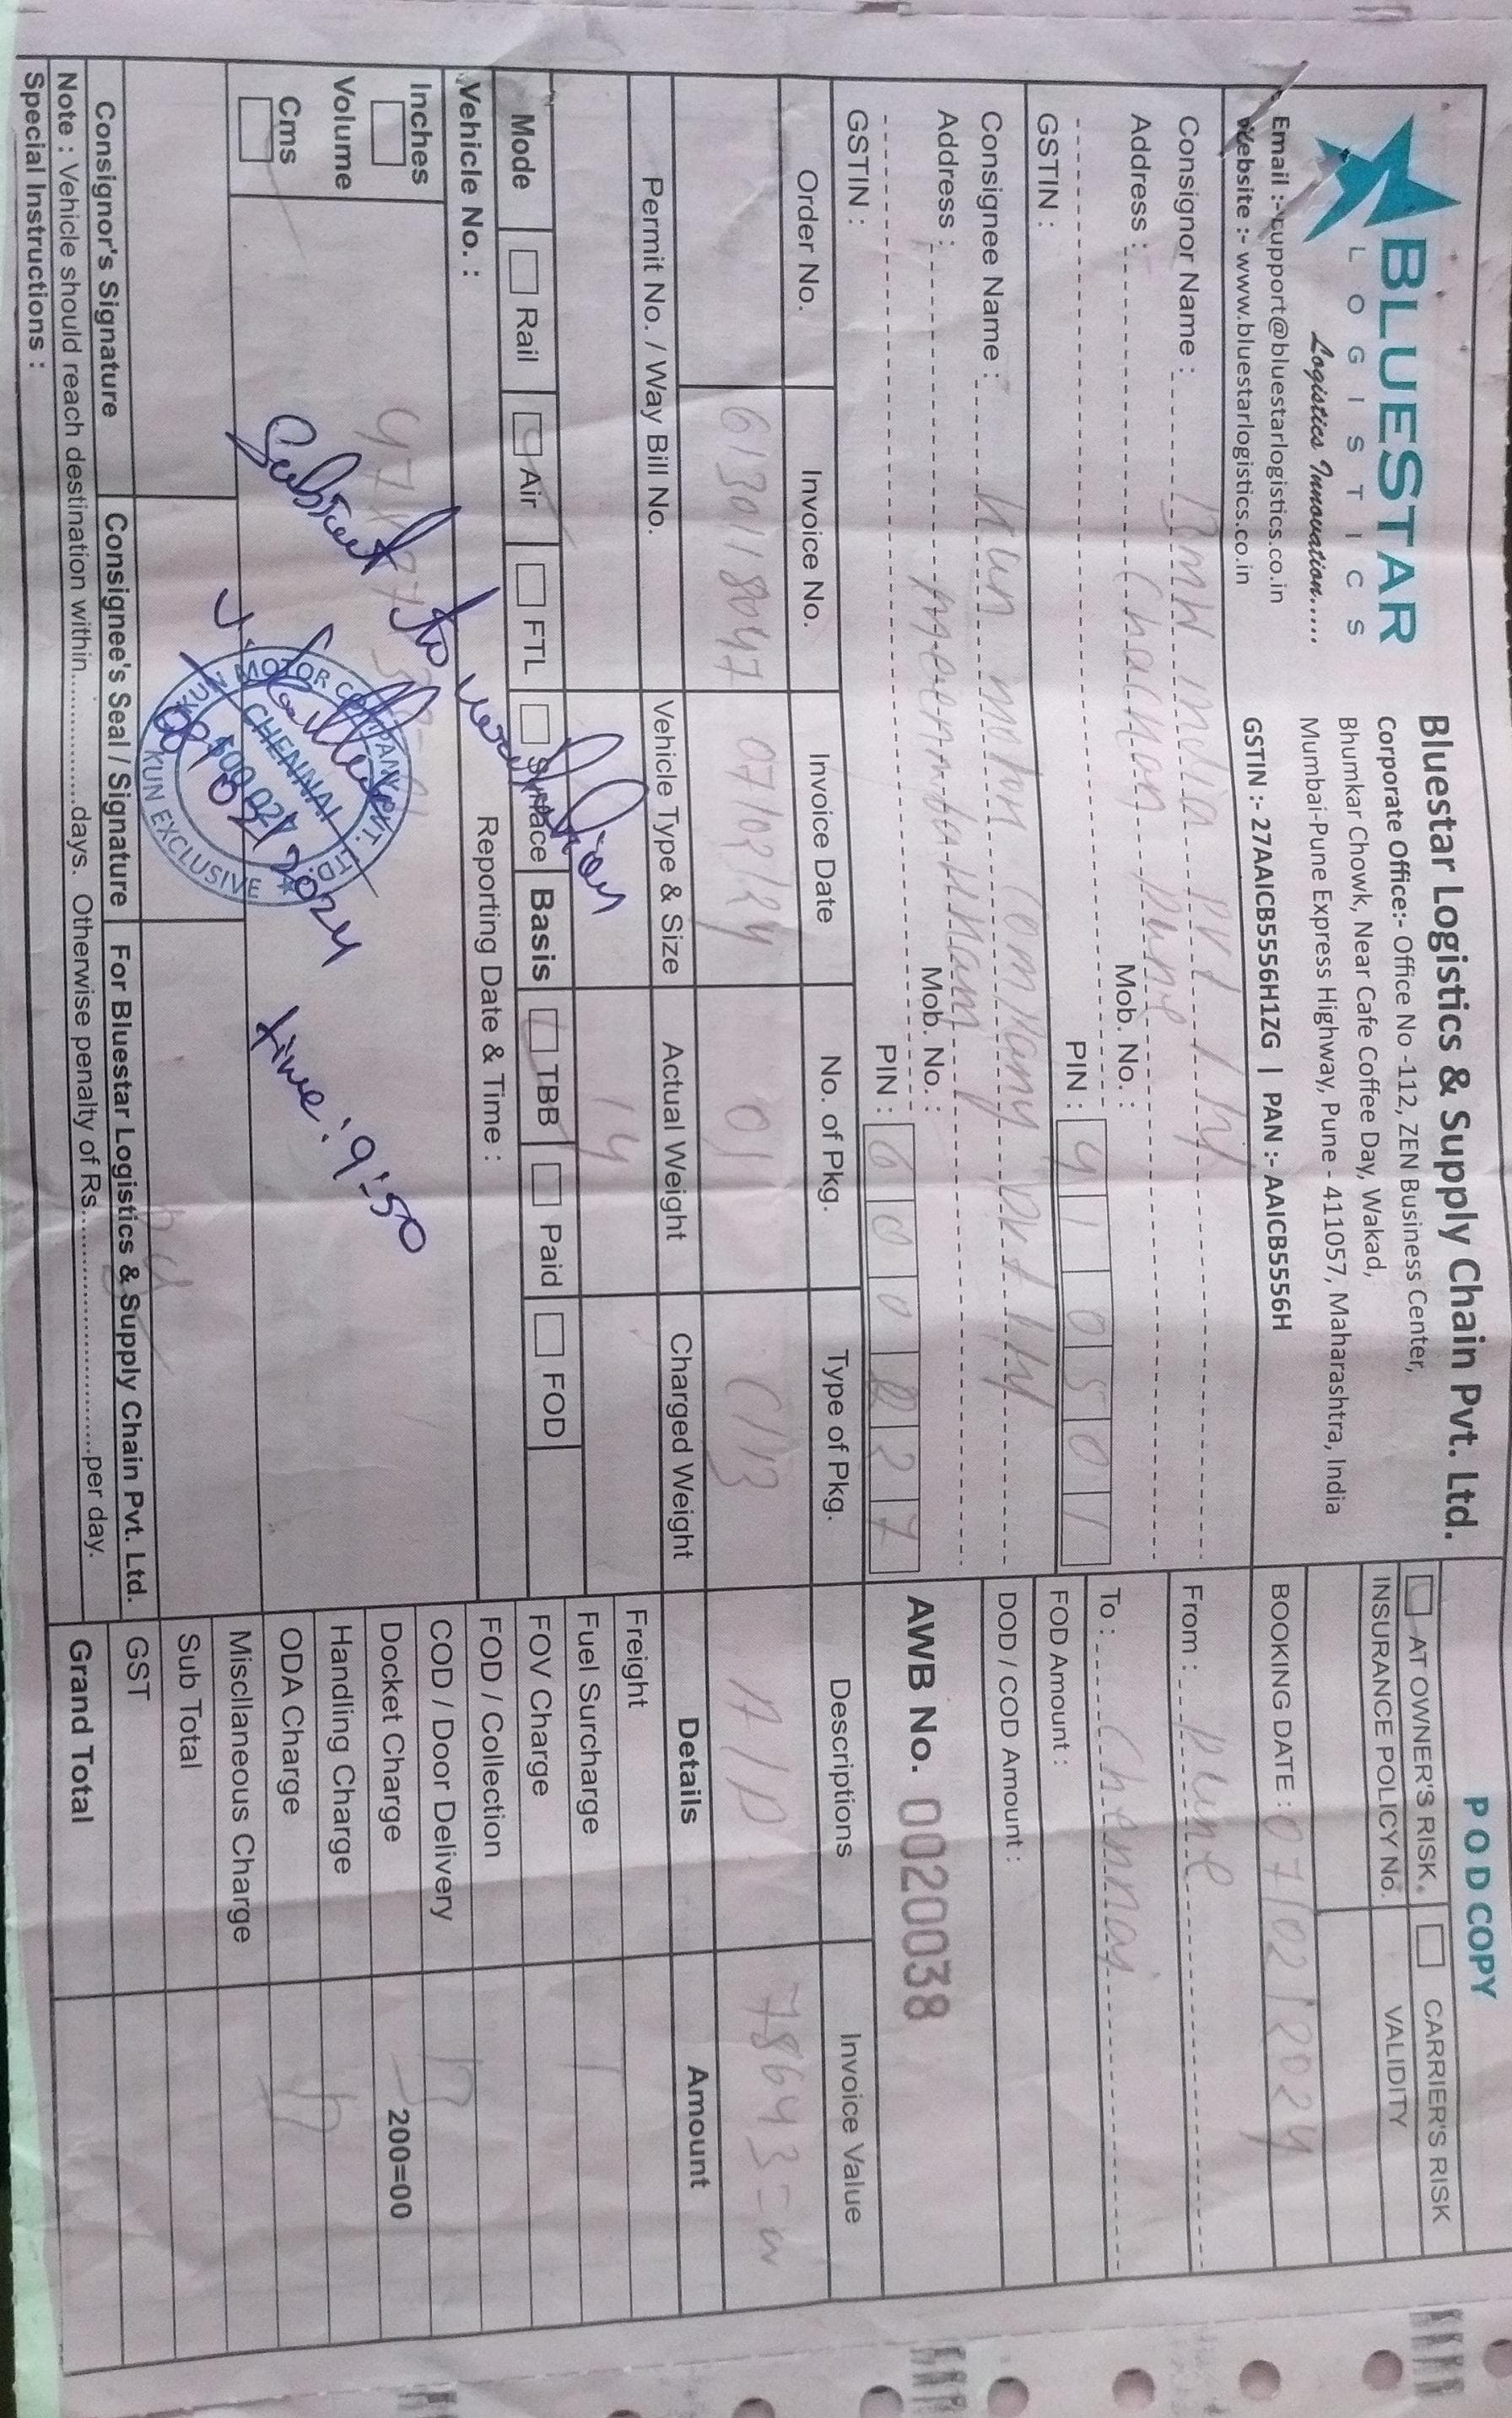 BLUESTAR
LOGISTICS
Logistics Innovation.....
Email :- support@bluestarlogistics.co.in
Website :- www.bluestarlogistics.co.in
Bluestar Logistics & Supply Chain Pvt. Ltd.
Corporate Office:- Office No -112, ZEN Business Center,
Bhumkar Chowk, Near Cafe Coffee Day, Wakad,
Mumbai-Pune Express Highway, Pune - 411057, Maharashtra, India
GSTIN :- 27AAICB5556H1ZG | PAN :- AAICB5556H
POD COPY
AT OWNER'S RISK. CARRIER'S RISK
INSURANCE POLICY No. VALIDITY
BOOKING DATE : 07/02/2024
From : Pune
To : Chennai
FOD Amount :
DOD / COD Amount :
AWB No. 0020038
Consignor Name : BMW india pvt ltd
Address : Chackan pune
Mob. No. :
PIN : 410501
GSTIN :
Consignee Name : Kun motor company pvt ltd
Address :
Mob. No. :
PIN : 600027
GSTIN :
Order No. Invoice No. Invoice Date No. of Pkg. Type of Pkg. Descriptions Invoice Value
6130118047 07/02/24 01 C/B A/P 78643=
Permit No. / Way Bill No. Vehicle Type & Size Actual Weight Charged Weight Details Amount
14
Freight
Fuel Surcharge
FOV Charge
FOD / Collection
COD / Door Delivery
Docket Charge 200=00
Handling Charge
ODA Charge
Miscllaneous Charge
Sub Total
GST
Grand Total
Mode Rail Air FTL Surface Basis TBB Paid FOD
Vehicle No. : Reporting Date & Time :
Inches
Volume
Cms
Subject to
08/02/2024
time: 9:50
KUN MOTOR COMPANY PVT. LTD.
CHENNAI
KUN EXCLUSIVE
Consignor's Signature Consignee's Seal / Signature For Bluestar Logistics & Supply Chain Pvt. Ltd.
Note : Vehicle should reach destination within................days. Otherwise penalty of Rs..............................per day.
Special Instructions :